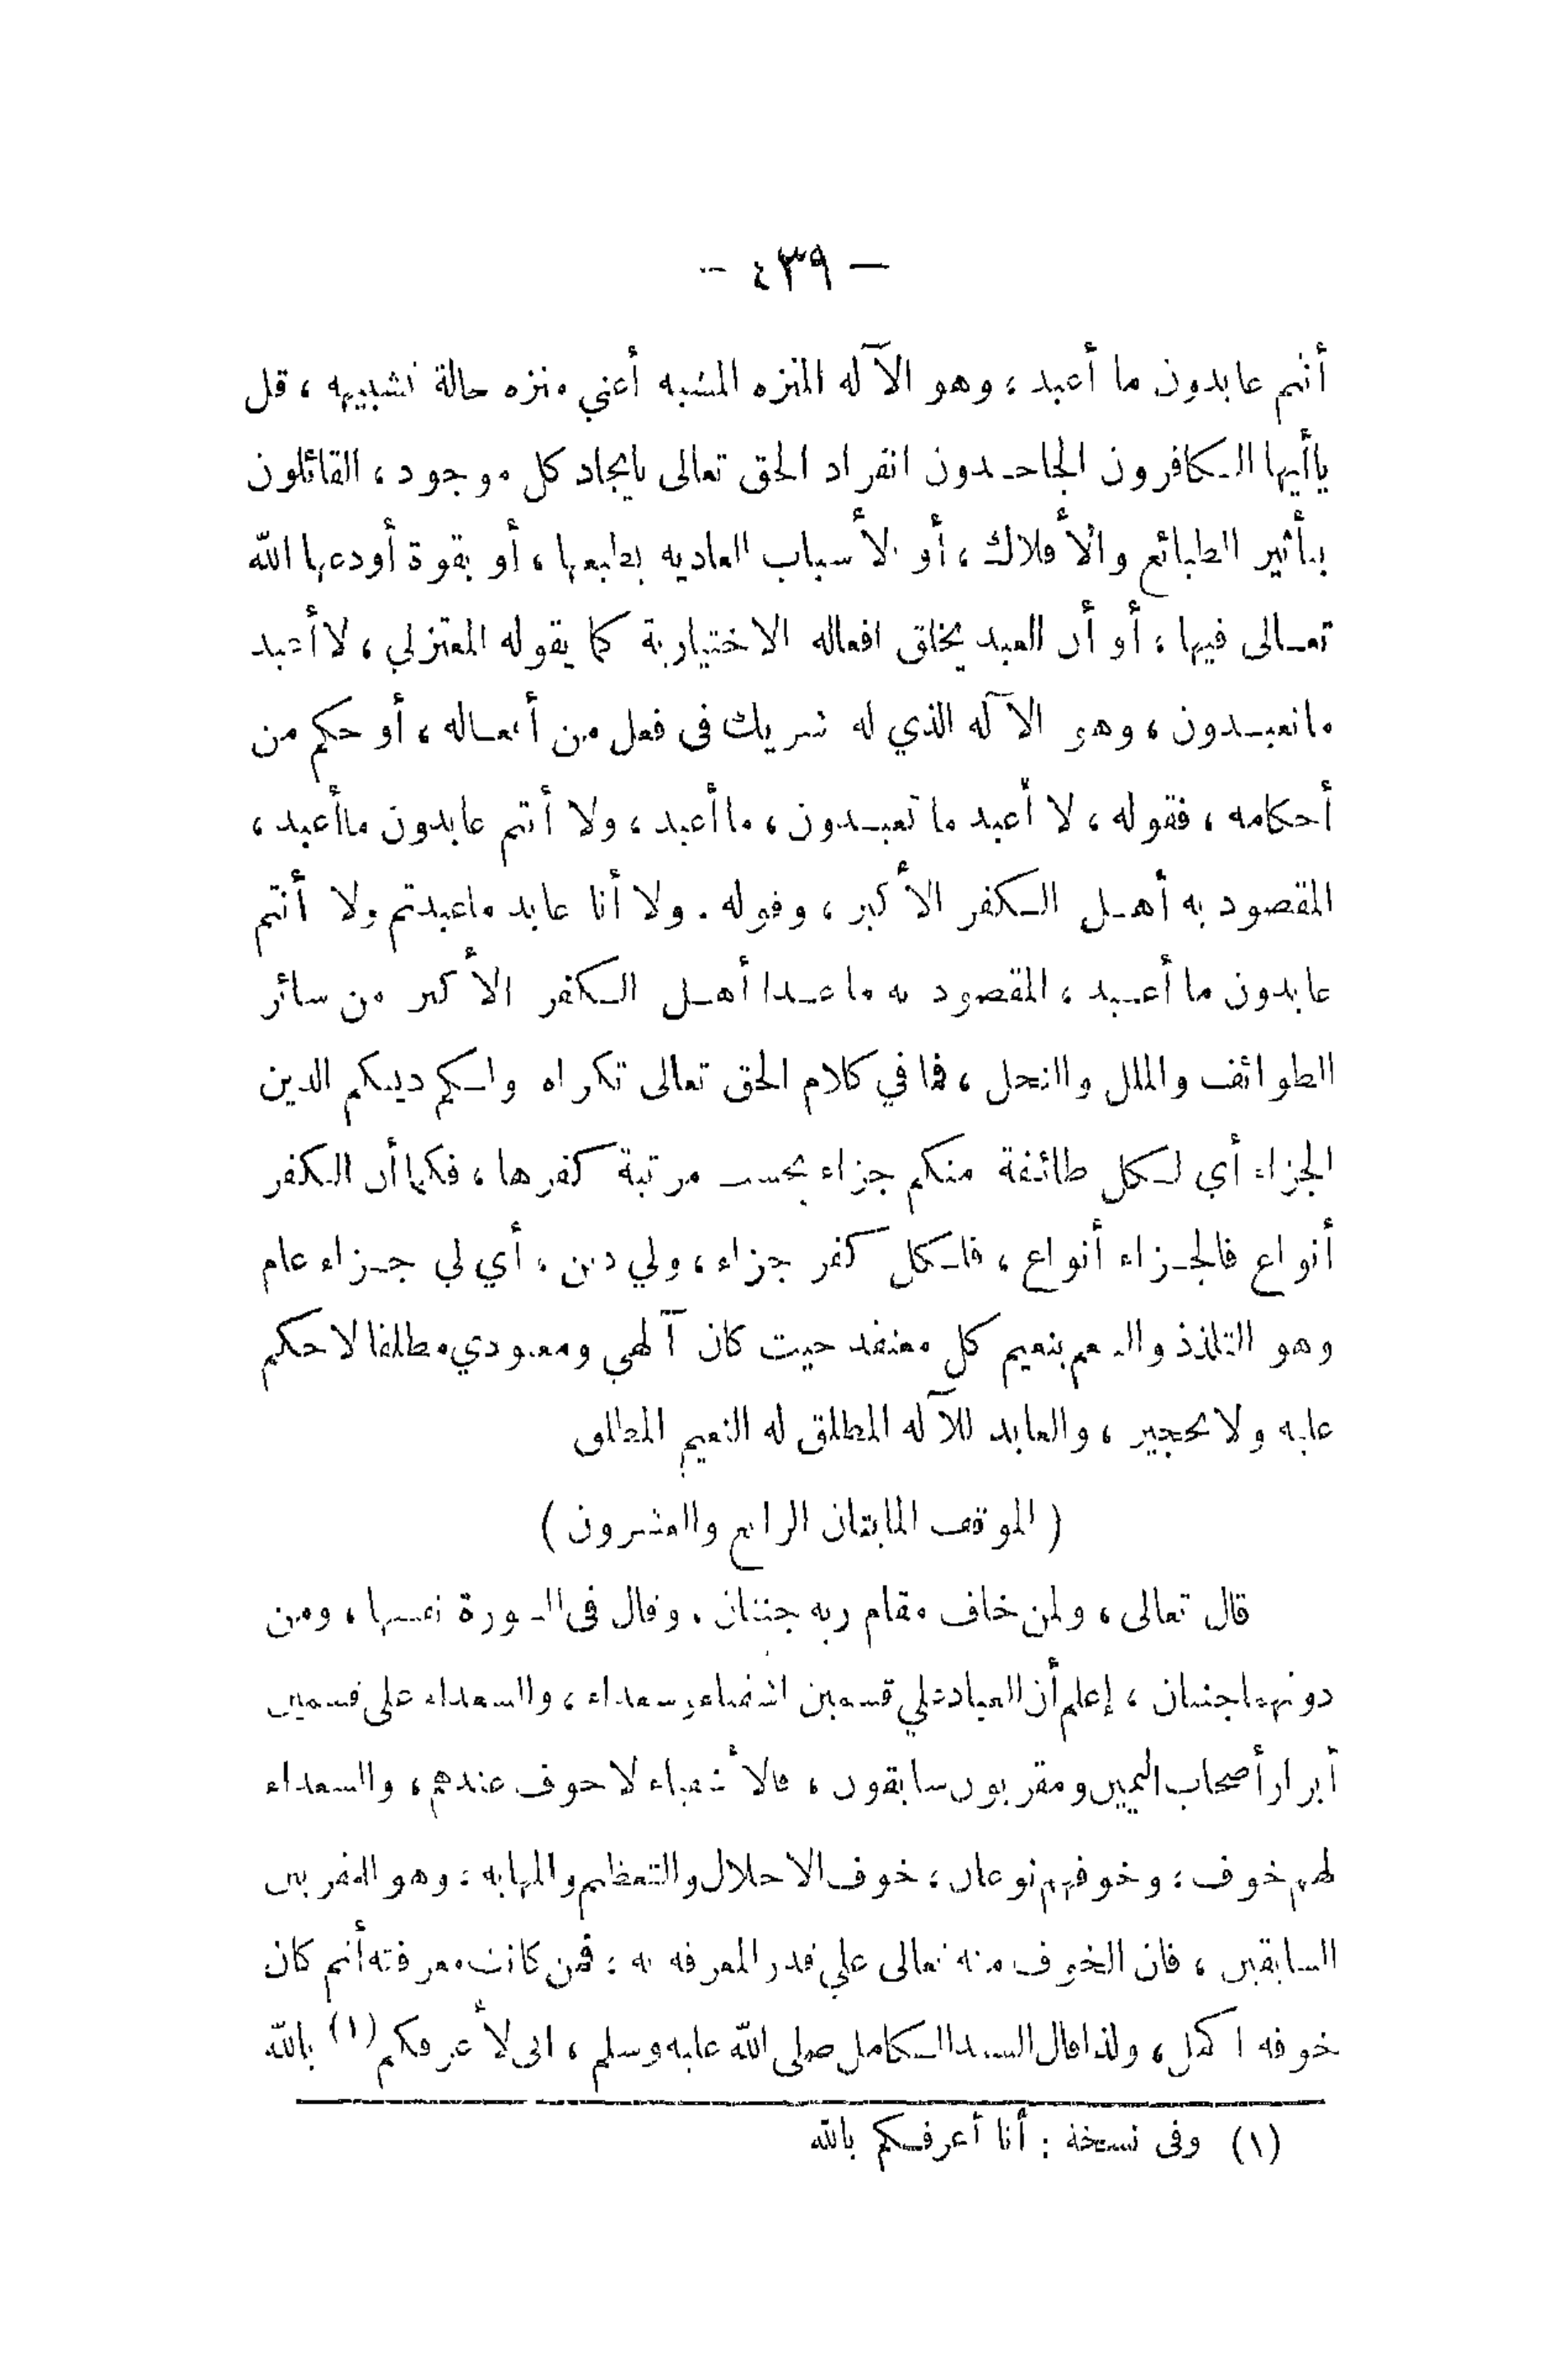 — ٤٣٩ —
أنتم عابدون ما أعبد ، وهو الآله المنزه المشبه أعني منزه حالة تشبيهه ، قل
ياأيها الكافرون الجاحدون انفراد الحق تعالى بايجاد كل موجود ، القائلون
بتأثير الطبائع والأفلاك ، أو الأسباب العاديه بطبعها ، أو بقوة أودعها الله
تعالى فيها ، أو أن العبد يخلق افعاله الاختيارية كما يقوله المعتزلي ، لا أعبد
ماتعبدون ، وهو الآله الذي له شريك فى فعل من أفعاله ، أو حكم من
أحكامه ، فقوله ، لا أعبد ما تعبدون ، ما أعبد ، ولا أنتم عابدون ماأعبد ،
المقصود به أهل الكفر الأكبر ، وقوله . ولا أنا عابد ماعبدتم ولا أنتم
عابدون ما أعبد ، المقصود به ما عدا أهل الكفر الأكبر من سائر
الطوائف والملل والنحل ، فما في كلام الحق تعالى تكراه ولكم دينكم الدين
الجزاء أي لكل طائفة منكم جزاء بحسب مرتبة كفرها ، فكما أن الكفر
أنواع فالجزاء أنواع ، فلكل كفر جزاء ، ولي دين . أي لي جزاء عام
وهو التلذذ والتنعم بنعيم كل معتقد حيث كان آلهي ومعبودي مطلقا لا حكم
عليه ولا تحجير ، والعابد للآله المطلق له النعيم المطلق
( الموقف المائتان الرابع والعشرون )
قال تعالى ، ولمن خاف مقام ربه جنتان . وقال فى السورة نفسها ، ومن
دونهما جنتان ، إعلم أن العباد علي قسمين اشقياء وسعداء ، والسعداء على قسمين
أبرار أصحاب اليمين ومقربون سابقون ، فالأشقياء لا خوف عندهم ، والسعداء
لهم خوف ، وخوفهم نوعان ، خوف الاجلال والتعظيم والمهابه ، وهو المقربين
السابقين ، فان الخوف منه تعالى علي قدر المعرفه به ، فمن كانت معرفته أتم كان
خوفه اكمل ، ولذا قال السيد الكامل صلى الله عليه وسلم ، انى لأعرفكم (١) بالله
(١) وفى نسخة : أنا أعرفكم بالله